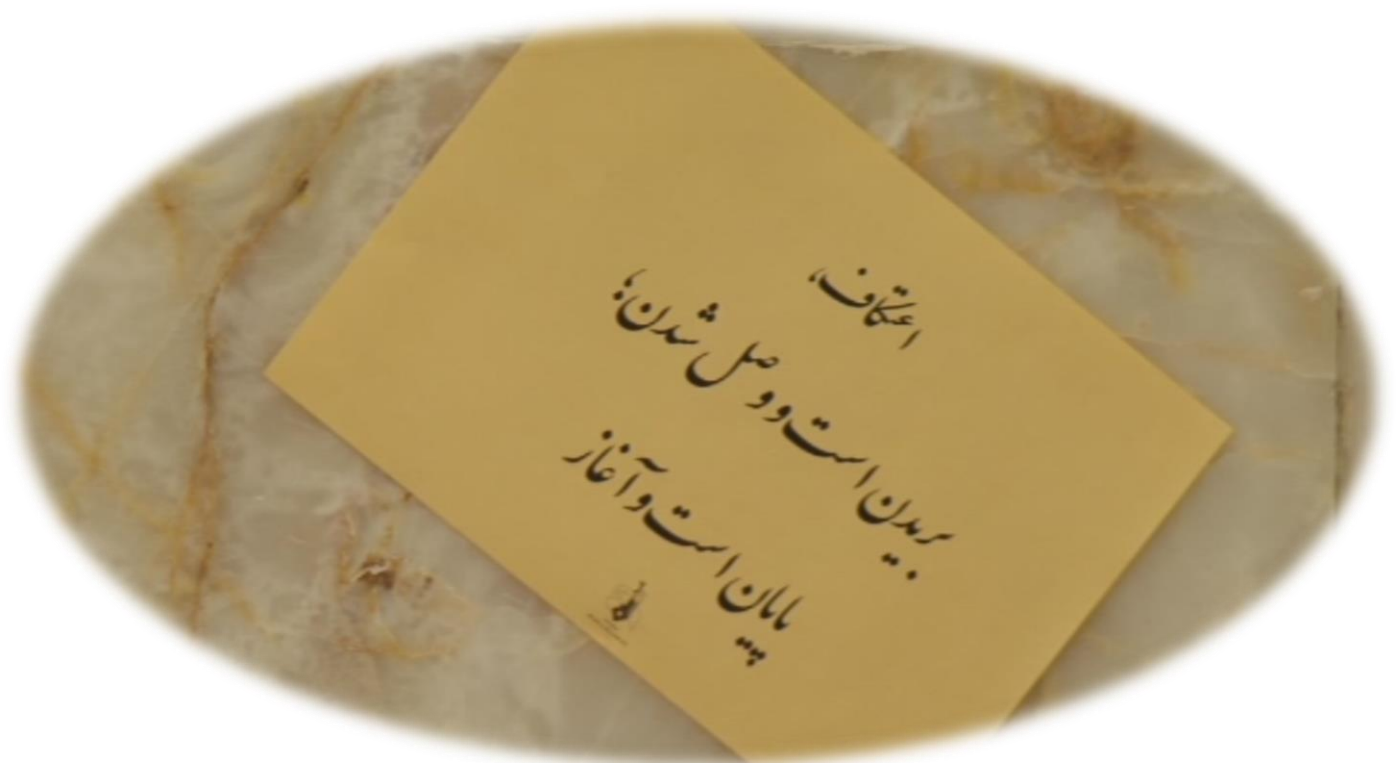 اعتکاف،
بریدن است و وصل شدن،
پایان است و آغاز